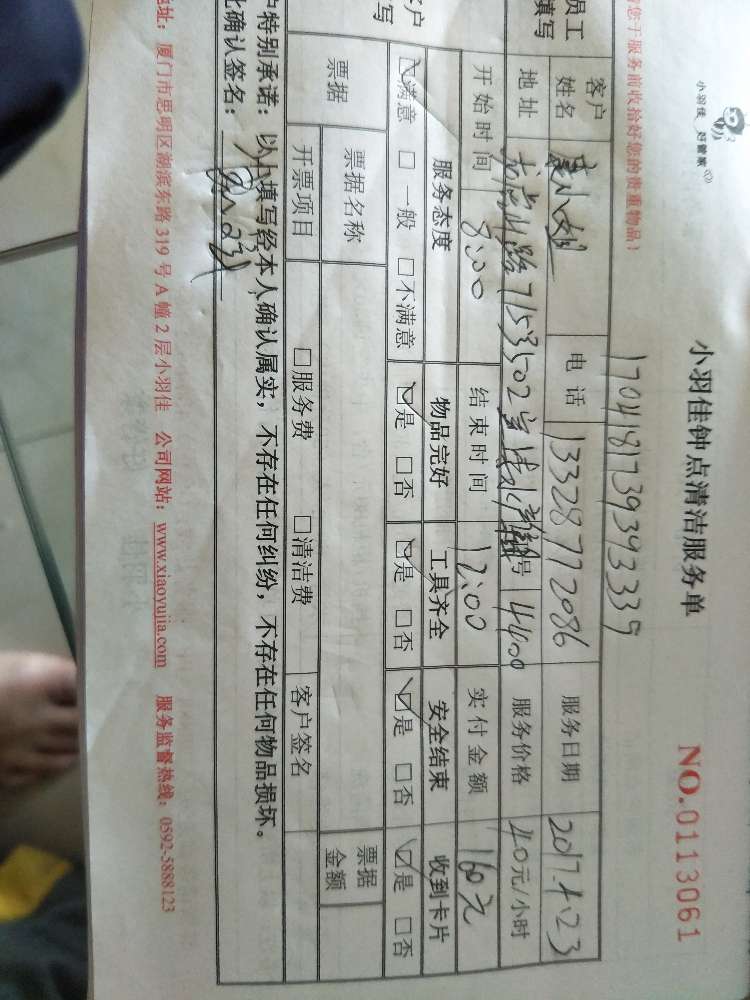 小羽佳 好管家
小羽佳钟点清洁服务单
NO.0113061
您于服务前收拾好您的贵重物品！
17041817393933339
员工填写
客户姓名 小姐 电话 13328772086 服务日期 2017.4.23
地址 服务价格 40元/小时
开始时间 8:00 结束时间 12:00 实付金额 160元
客户写
服务态度 物品完好 工具齐全 安全结束 收到卡片
☑满意 □一般 □不满意 ☑是 □否 ☑是 □否 ☑是 □否 ☑是 □否
票据 票据名称 票据金额
开票项目 □服务费 □清洁费 客户签名
户特别承诺：以上填写经本人确认属实，不存在任何纠纷，不存在任何物品损坏。
此确认签名：
地址：厦门市思明区湖滨东路 319 号 A 幢 2 层小羽佳 公司网站：www.xiaoyujia.com 服务监督热线：0592-5888123